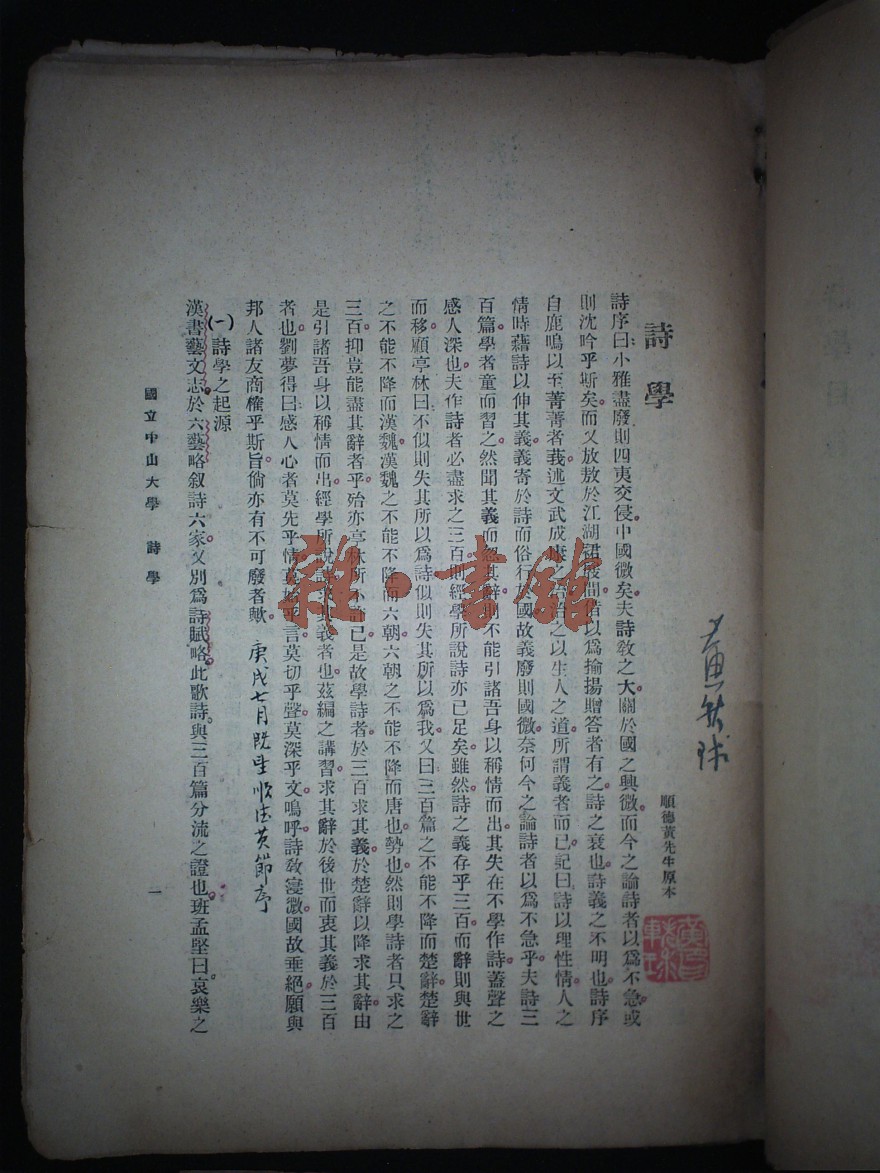 詩學
順德黃先生原本
詩序曰小雅盡廢則四夷交侵中國微矣夫詩敎之大關於國之興微而今之論詩者以爲不急或
則沈吟乎斯矣而又放敖於江湖裙屐間借以爲揄揚贈答者有之詩之衰也詩義之不明也詩序
自鹿鳴以至菁菁者莪述文武成康治之以生人之道所謂義者而已記曰詩以理性情人之
情時藉詩以伸其義義寄於詩而俗行於國故義廢則國微奈何今之論詩者以爲不急乎夫詩三
百篇學者童而習之然聞其義而忽其辭則不能引諸吾身以稱情而出其失在不學作詩蓋聲之
感人深也夫作詩者必盡求之三百則經學所說詩亦已足矣雖然詩之義存乎三百而辭則與世
而移顧亭林曰不似則失其所以爲詩似則失其所以爲我又曰三百篇之不能不降而楚辭楚辭
之不能不降而漢魏漢魏之不能不降而六朝六朝之不能不降而唐也勢也然則學詩者只求之
三百抑豈能盡其辭者乎殆亦亭林所不許已是故學詩者於三百求其義於楚辭以降求其辭由
是引諸吾身以稱情而出經學所說詩其義者也茲編之講習求其辭於後世而衷其義於三百
者也劉夢得曰感人心者莫先乎情莫始乎言莫切乎聲莫深乎文嗚呼詩敎寖微國故垂絕願與
邦人諸友商榷乎斯旨倘亦有不可廢者歟 庚戌七月旣望順德黃節序
(一)詩學之起源
漢書藝文志於六藝略叙詩六家又別爲詩賦略此歌詩與三百篇分流之證也班孟堅曰哀樂之
國立中山大學 詩學
一
雜·書館